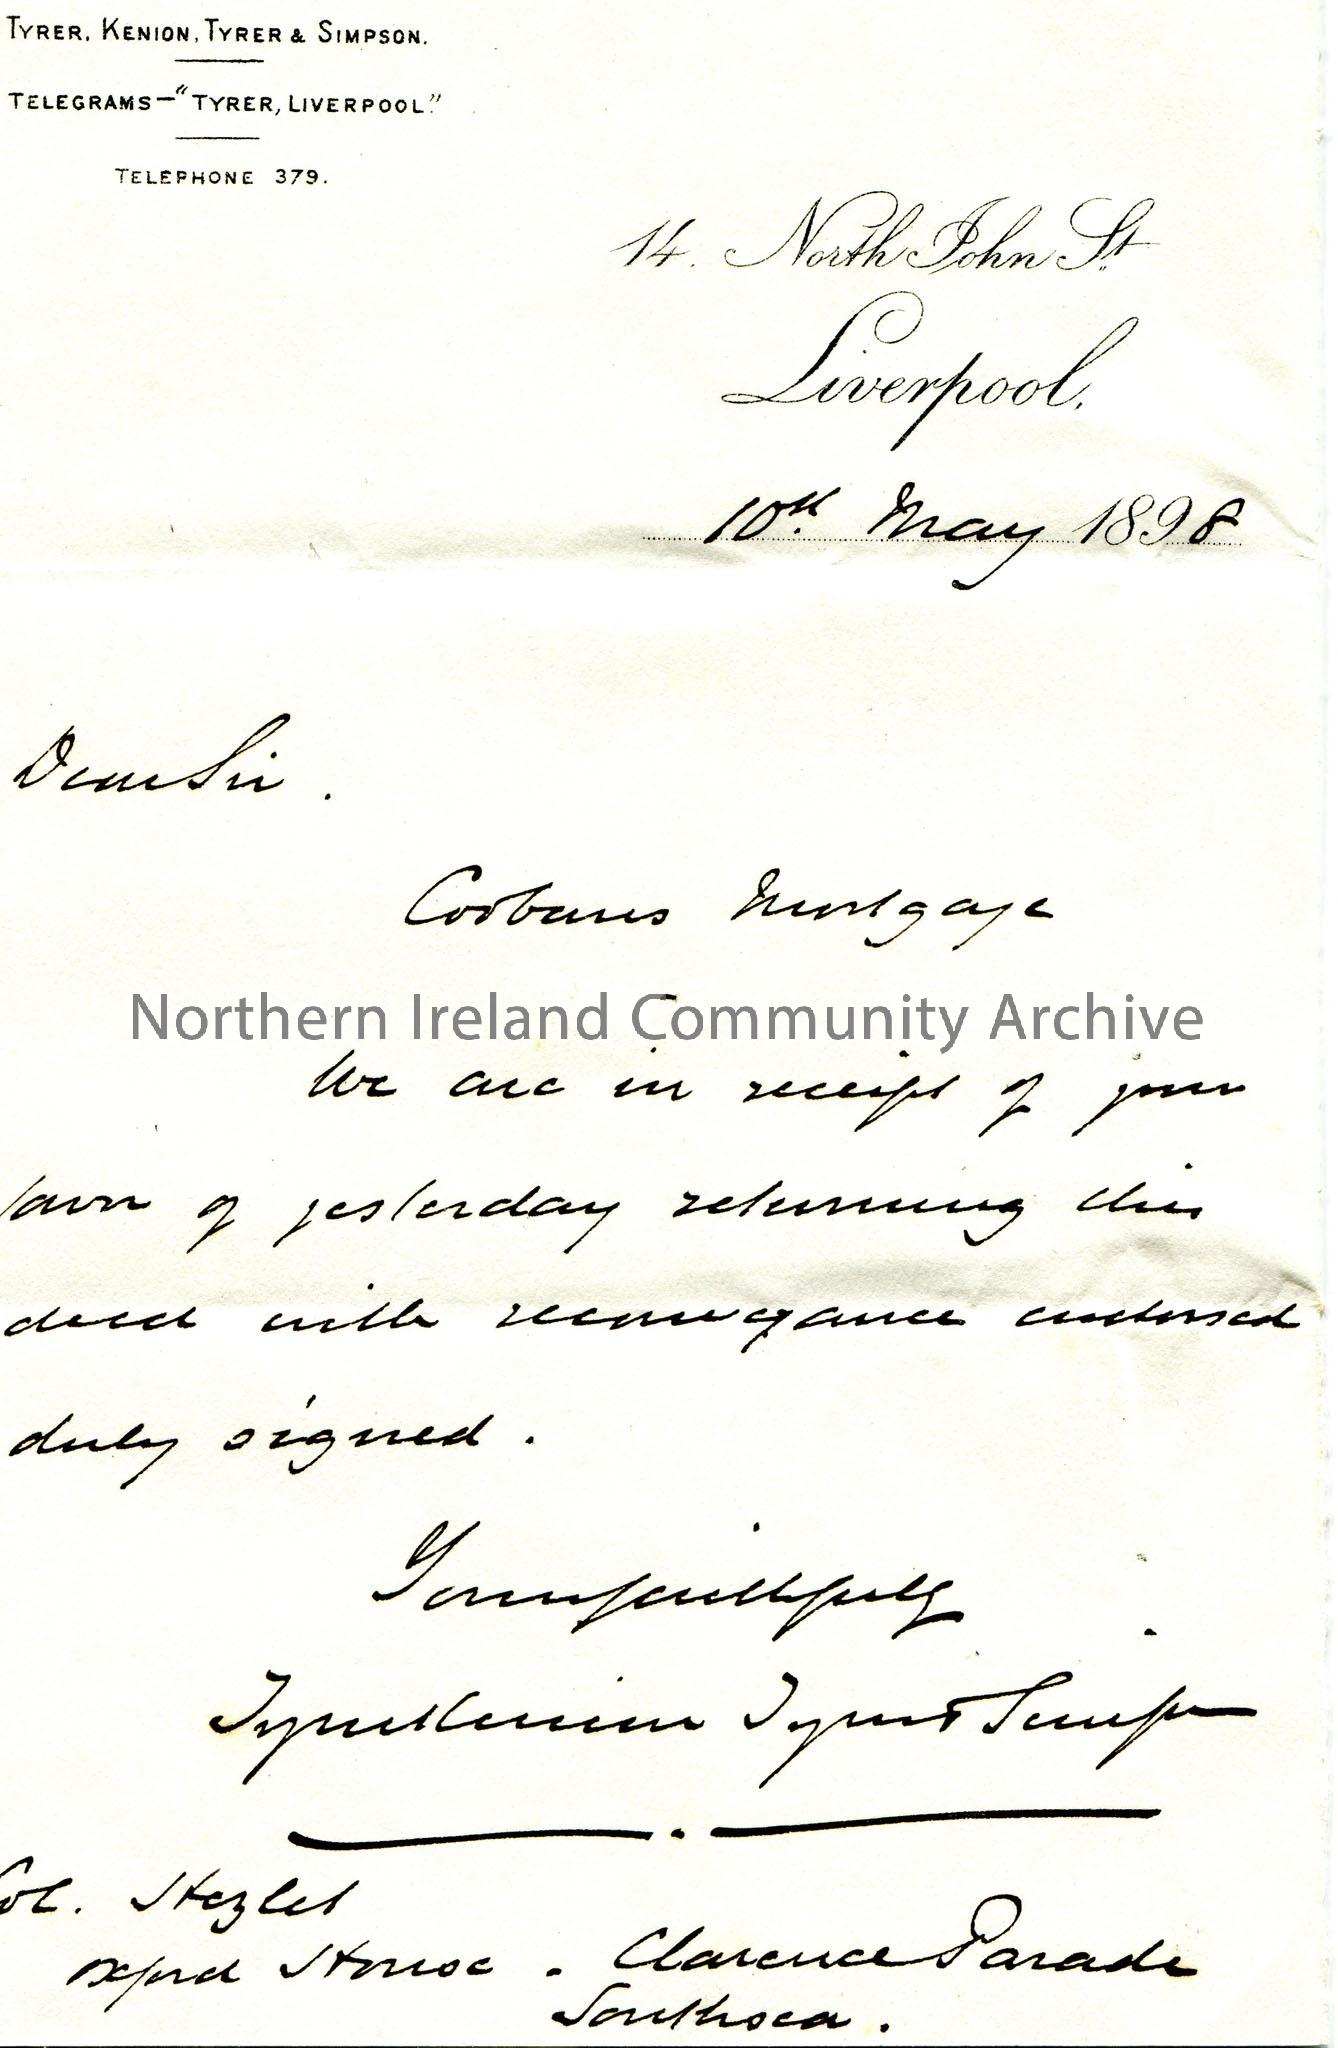 TYRER, KENION, TYRER & SIMPSON.
TELEGRAMS—"TYRER, LIVERPOOL."
TELEPHONE 379.
14. North John St.
Liverpool.
10th May 1898
Dear Sir.
Mortgage
Northern Ireland Community Archive
We are in receipt of your
favor of yesterday returning this
deed with reconveyance endorsed
duly signed.
Yours faithfully
Tyrer Kenion Tyrer & Simpson
Col. Hezlet
Oxford House. Clarence Parade
Southsea.